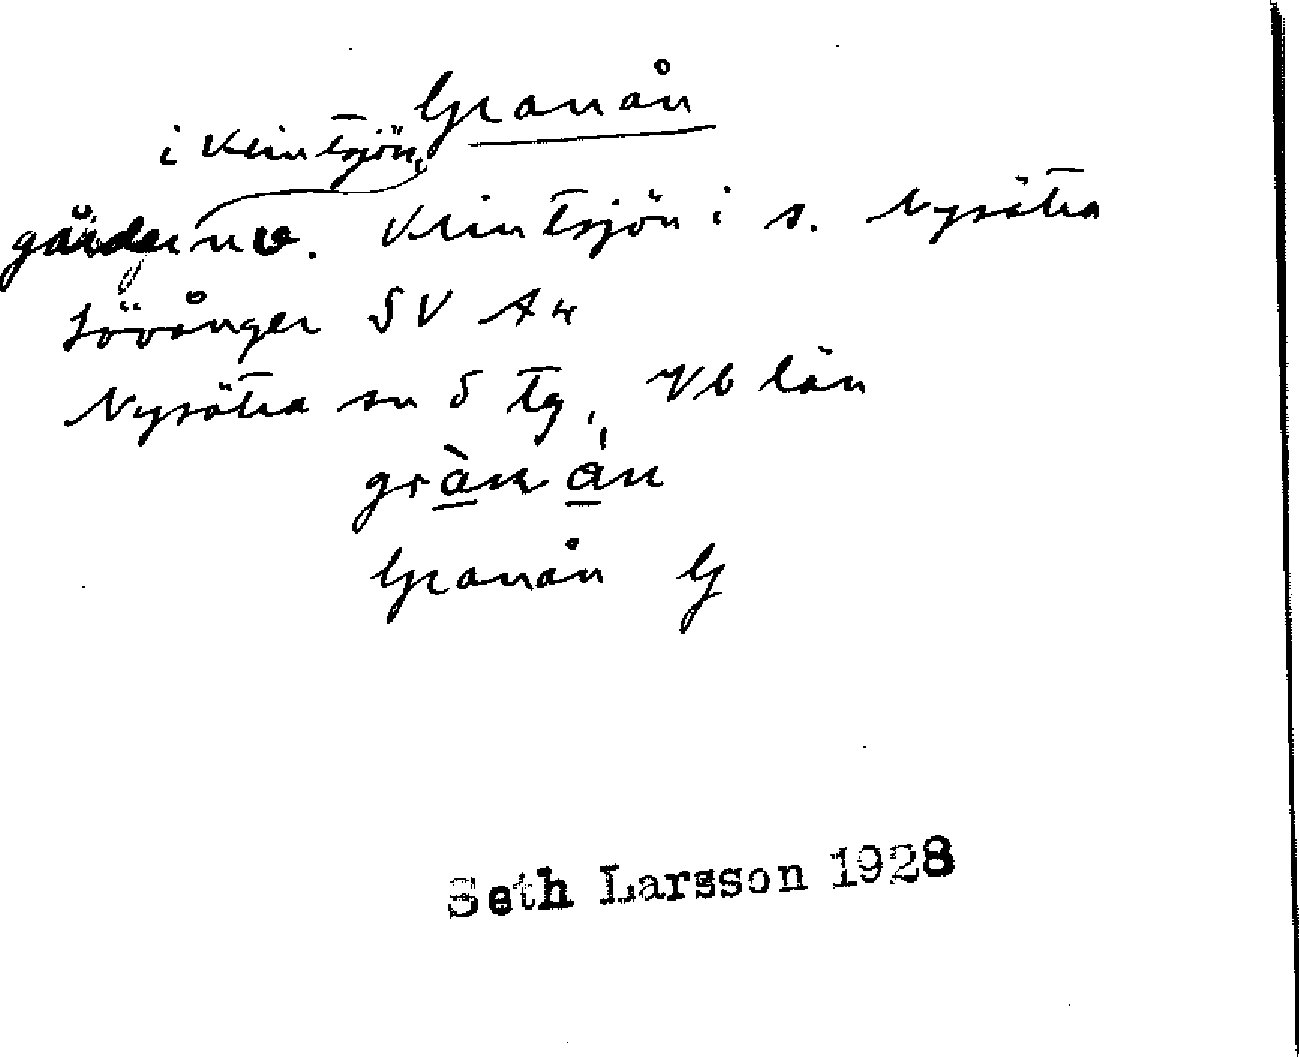 Granån
i Klintsjön,
gårder nv. Klintsjön i s. Nysätra
Lövånger SV A4
Nysätra sn S Tg, Vb län
grànán
Granån G
Seth Larsson 1928